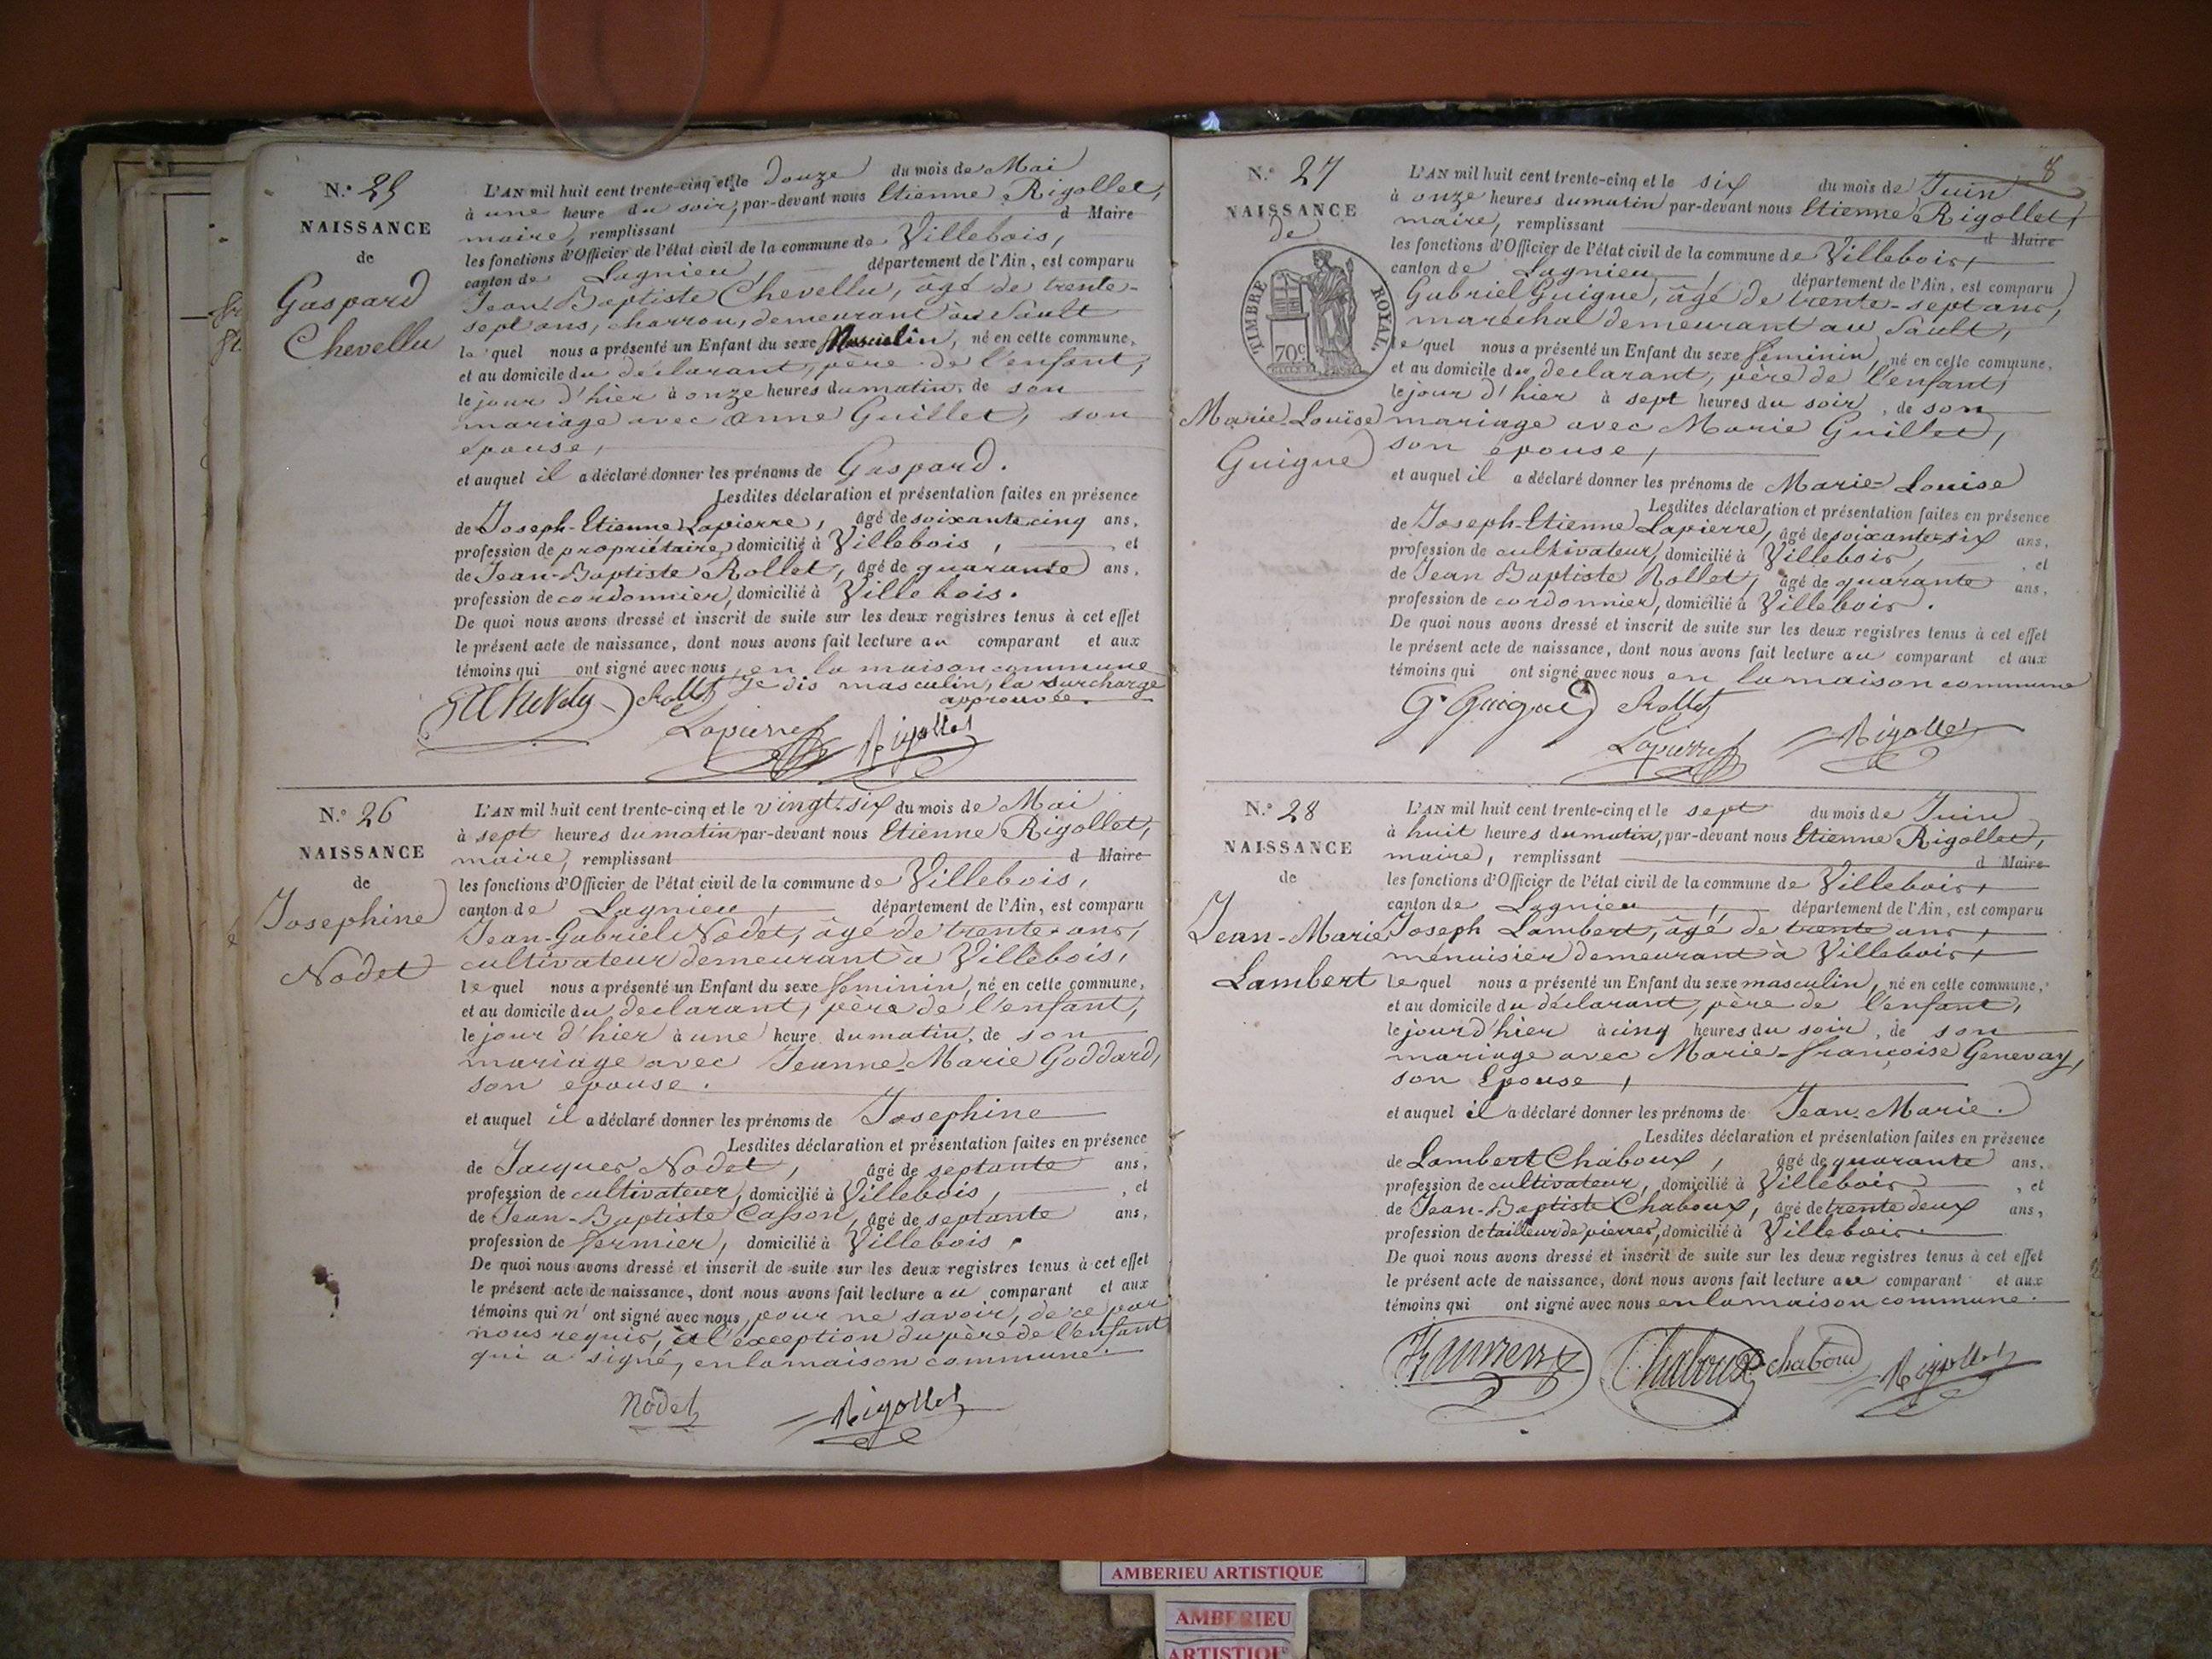 N.º 25
NAISSANCE
de
Gaspard
Chevellu
L'AN mil huit cent trente-cinq et le douze du mois de Mai
à une heure du soir, par-devant nous Etienne Rigollet,
maire, remplissant d Maire
les fonctions d'Officier de l'état civil de la commune de Villebois,
canton de Lagnieu, département de l'Ain, est comparu
Jean Baptiste Chevellu, âgé de trente-
sept ans, charron, demeurant au Sault
lequel nous a présenté un Enfant du sexe Masculin, né en cette commune,
et au domicile du déclarant, père de l'enfant,
le jour d'hier à onze heures du matin, de son
mariage avec Anne Guillet, son
epouse,
et auquel il a déclaré donner les prénoms de Gaspard.
Lesdites déclaration et présentation faites en présence
de Joseph-Etienne Lapierre, âgé de soixante cinq ans,
profession de propriétaire, domicilié à Villebois, et
de Jean-Baptiste Rollet, âgé de quarante ans,
profession de cordonnier, domicilié à Villebois.
De quoi nous avons dressé et inscrit de suite sur les deux registres tenus à cet effet
le présent acte de naissance, dont nous avons fait lecture au comparant et aux
témoins qui ont signé avec nous, en la maison commune
Je dis masculin, la surcharge
approuvée.
Rollet
Lapierre Rigollet
N.º 26
NAISSANCE
de
Josephine
Nodet
L'AN mil huit cent trente-cinq et le vingt-six du mois de Mai
à sept heures du matin par-devant nous Etienne Rigollet,
maire, remplissant d Maire
les fonctions d'Officier de l'état civil de la commune de Villebois,
canton de Lagnieu, département de l'Ain, est comparu
Jean-Gabriel Nodet, âgé de trente ans,
cultivateur demeurant à Villebois,
lequel nous a présenté un Enfant du sexe féminin, né en cette commune,
et au domicile du declarant, père de l'enfant,
le jour d'hier à une heure du matin, de son
mariage avec Jeanne-Marie Goddard,
son epouse.
et auquel il a déclaré donner les prénoms de Josephine
Lesdites déclaration et présentation faites en présence
de Jacques Nodet, âgé de septante ans,
profession de cultivateur, domicilié à Villebois, et
de Jean-Baptiste Casson, âgé de septante ans,
profession de fermier, domicilié à Villebois.
De quoi nous avons dressé et inscrit de suite sur les deux registres tenus à cet effet
le présent acte de naissance, dont nous avons fait lecture au comparant et aux
témoins qui n'ont signé avec nous, pour ne savoir, de ce par
nous requis, à l'exception du père de l'enfant
qui a signé, en la maison commune.
Nodet Rigollet
8
N.º 27
NAISSANCE
de
TIMBRE ROYAL
70c
Marie-Louise
Guigue
L'AN mil huit cent trente-cinq et le six du mois de Juin
à onze heures du matin par-devant nous Etienne Rigollet,
maire, remplissant d Maire
les fonctions d'Officier de l'état civil de la commune de Villebois,
canton de Lagnieu, département de l'Ain, est comparu
Gabriel Guigue, âgé de trente-sept ans,
maréchal demeurant au Sault,
lequel nous a présenté un Enfant du sexe féminin, né en cette commune,
et au domicile du declarant, père de l'enfant,
le jour d'hier à sept heures du soir, de son
mariage avec Marie Guillet,
son epouse,
et auquel il a déclaré donner les prénoms de Marie-Louise
Lesdites déclaration et présentation faites en présence
de Joseph-Etienne Lapierre, âgé de soixante-six ans,
profession de cultivateur, domicilié à Villebois, et
de Jean Baptiste Rollet, âgé de quarante ans,
profession de cordonnier, domicilié à Villebois.
De quoi nous avons dressé et inscrit de suite sur les deux registres tenus à cet effet
le présent acte de naissance, dont nous avons fait lecture au comparant et aux
témoins qui ont signé avec nous en la maison commune
G. Guigue Rollet
Lapierre Rigollet
N.º 28
NAISSANCE
de
Jean-Marie
Lambert
L'AN mil huit cent trente-cinq et le sept du mois de Juin
à huit heures du matin, par-devant nous Etienne Rigollet,
maire, remplissant d Maire
les fonctions d'Officier de l'état civil de la commune de Villebois,
canton de Lagnieu, département de l'Ain, est comparu
Joseph Lambert, âgé de trente ans,
menuisier demeurant à Villebois,
lequel nous a présenté un Enfant du sexe masculin, né en cette commune,
et au domicile du déclarant, père de l'enfant,
le jour d'hier à cinq heures du soir, de son
mariage avec Marie-françoise Genevay,
son Epouse,
et auquel il a déclaré donner les prénoms de Jean-Marie.
Lesdites déclaration et présentation faites en présence
de Lambert Chaboux, âgé de quarante ans,
profession de cultivateur, domicilié à Villebois, et
de Jean-Baptiste Chaboux, âgé de trente deux ans,
profession de tailleur de pierres, domicilié à Villebois.
De quoi nous avons dressé et inscrit de suite sur les deux registres tenus à cet effet
le présent acte de naissance, dont nous avons fait lecture au comparant et aux
témoins qui ont signé avec nous en la maison commune.
Chaboux chaboud Rigollet
AMBERIEU ARTISTIQUE
AMBERIEU
ARTISTIQUE